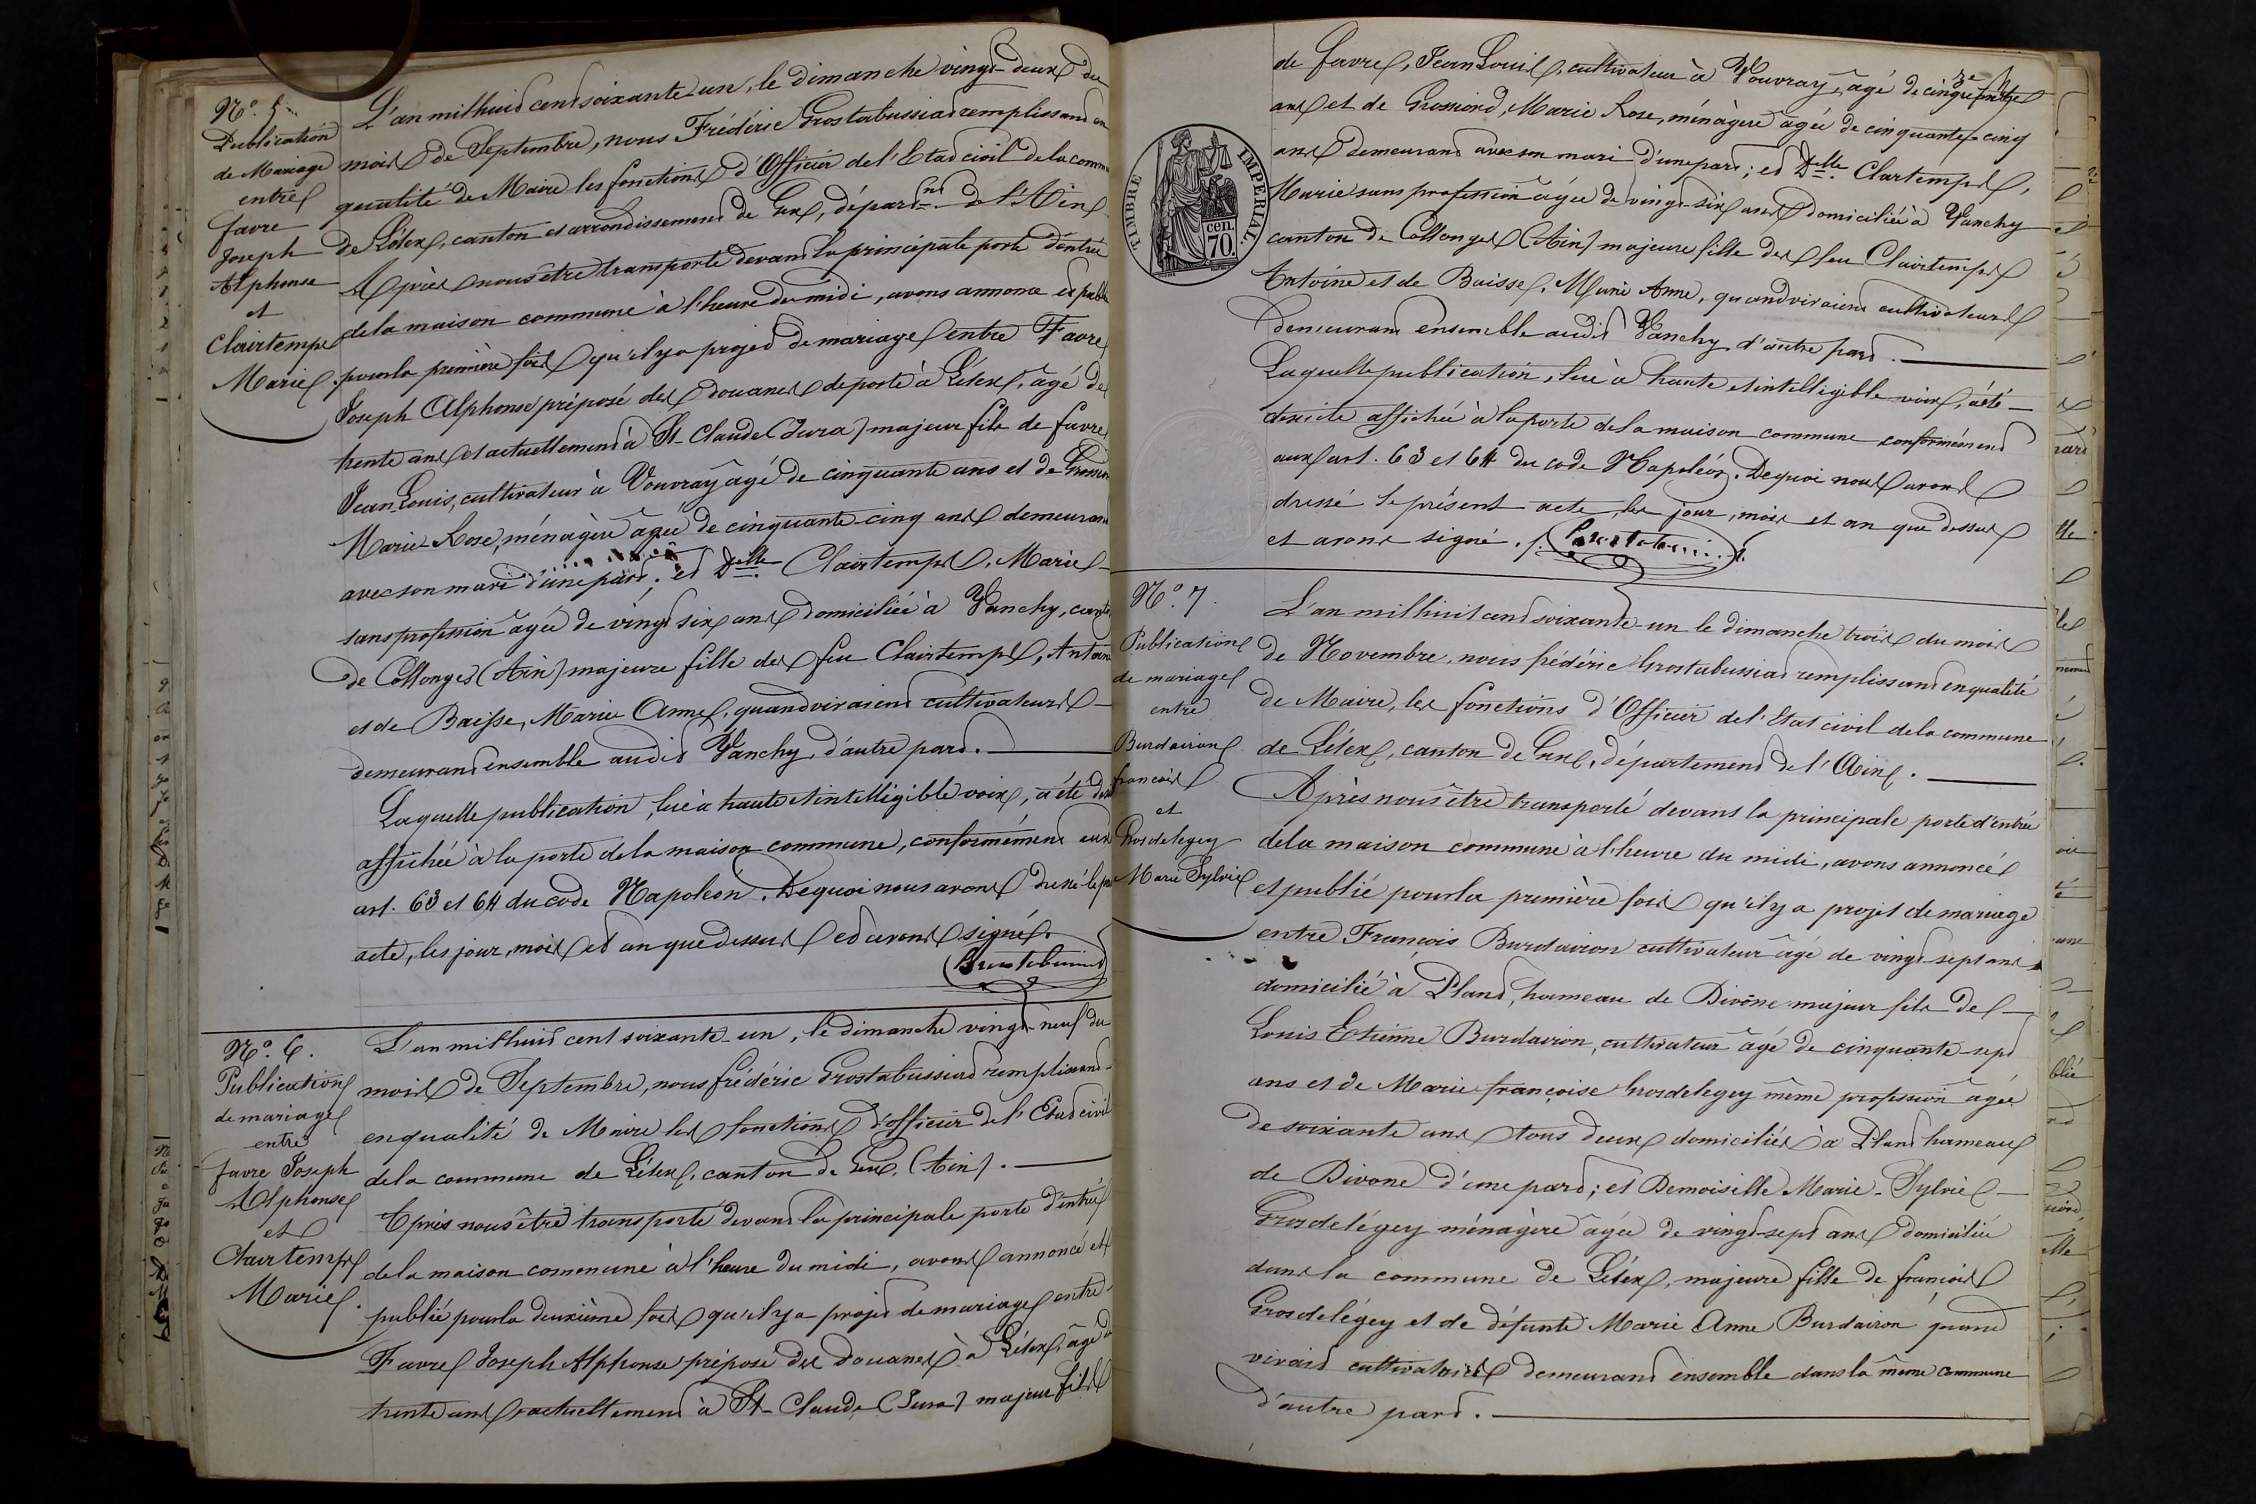 N.° 5
Publication
de Mariage
entre
favre
Joseph
Alphonse
et
Clairtemps
Marie.
L'an mil huit cent soixante un, le dimanche vingt-deux du
mois de Septembre, nous Frédéric Grostabussiat remplissant en
qualité de Maire les fonctions d'Officier de l'Etat civil de la comm
de Lélex, canton et arrondissement de Gex, départ.nt de l'Ain
Après nous être transporté devant la principale porte d'entrée
de la maison commune à l'heure du midi, avons annoncé et publié
pour la première fois qu'il y a projet de mariage entre Favre
Joseph Alphonse préposé des douanes de poste à Lélex, âgé de
trente ans et actuellement à St Claude (Jura) majeur fils de favre
Jean-Louis, cultivateur à Vouvray âgé de cinquante ans et de
Marie-Rose, ménagère âgée de cinquante-cinq ans demeurant
avec son mari d'une part; et Delle Clairtemps, Marie
sans profession âgée de vingt six ans domiciliée à Vanchy, canton
de Collonges (Ain) majeure fille des feu Clairtemps, Antoine
et de Baisse, Marie Anne, quand viraient cultivateurs
demeurant ensemble audit Vanchy, d'autre part.
Laquelle publication, lue à haute et intelligible voix, a été de
affichée à la porte de la maison commune, conformément aux
art. 63 et 64 du code Napoléon. De quoi nous avons dressé le
acte, les jour, mois et an que dessus et avons signé.
N.° 6.
Publication
de mariage
entre
favre Joseph
Alphonse
et
Clairtemps
Marie.
L'an mil huit cent soixante-un, le dimanche vingt-neuf du
mois de Septembre, nous frédéric Grostabussiat remplissant
en qualité de Maire les fonctions d'officier de l'Etat civil
de la commune de Lélex, canton de Gex, (Ain).
Après nous être transporté devant la principale porte d'entrée
de la maison commune à l'heure du midi, avons annoncé et
publié pour la deuxième fois qu'il y a projet de mariage entre
Favre Joseph Alphonse préposé des douanes à Lélex, âgé de
trente ans, actuellement à St Claude (Jura) majeur fils
TIMBRE IMPERIAL.
70.
cen.
de favre, Jean Louis, cultivateur à Vouvray, âgé de cinquante
ans et de Grossiord, Marie Rose, ménagère âgée de cinquante-cinq
ans demeurant avec son mari d'une part; et Delle Clartemps,
Marie sans profession âgée de vingt-six ans domiciliée à Vanchy
canton de Collonges (Ain) majeure fille des feu Clairtemps
Antoine et de Baisse, Marie Anne, quand viraient cultivateurs
demeurant ensemble audit Vanchy, d'autre part.
Laquelle publication, lue à haute et intelligible voix, a été
de suite affichée à la porte de la maison commune conformément
aux art. 63 et 64 du code Napoléon. De quoi nous avons
dressé le présent acte, les jour, mois et an que dessus
et avons signé.
N.° 7.
Publication
de mariage
entre
Burdairon
françois
et
Grosdelegey
Marie Sylvie
L'an mil huit cent soixante-un le dimanche trois du mois
de Novembre, nous frédéric Grostabussiat remplissant en qualité
de Maire, les fonctions d'Officier de l'Etat civil de la commune
de Lélex, canton de Gex, département de l'Ain.
Après nous être transporté devant la principale porte d'entrée
de la maison commune à l'heure du midi, avons annoncé
et publié pour la première fois qu'il y a projet de mariage
entre François Burdairon cultivateur âgé de vingt-sept ans
domicilié à Plant, hameau de Divône majeur fils de
Louis Etienne Burdairon, cultivateur âgé de cinquante-sept
ans et de Marie françoise Grosdelegey même profession âgée
de soixante ans tous deux domiciliés à Plant hameau
de Divone d'une part; et Demoiselle Marie-Sylvie
Grosdelégey ménagère âgée de vingt-sept ans domiciliée
dans la commune de Lélex, majeure fille de françois
Grosdelégey et de défunte Marie Anne Burdairon quand
virait cultivatrice demeurant ensemble dans la même commune
d'autre part.